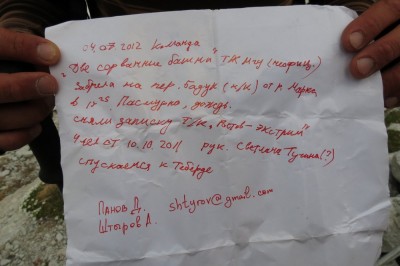 04.07.2012 Команда
"Две сорванные башни" Т/К МГУ (неофиц.)
забрела на пер. Бадук (н/к) от л. Марка,
в 17 25 Пасмурно, дождь.
сняли записку Т/К "Ветов-экстрим"
4 чел от 10.10.2011 рук. Светлана Тугина(?)
спускаемся к Теберде
Панов Д. shtyrov@gmail.com
Штыров А.